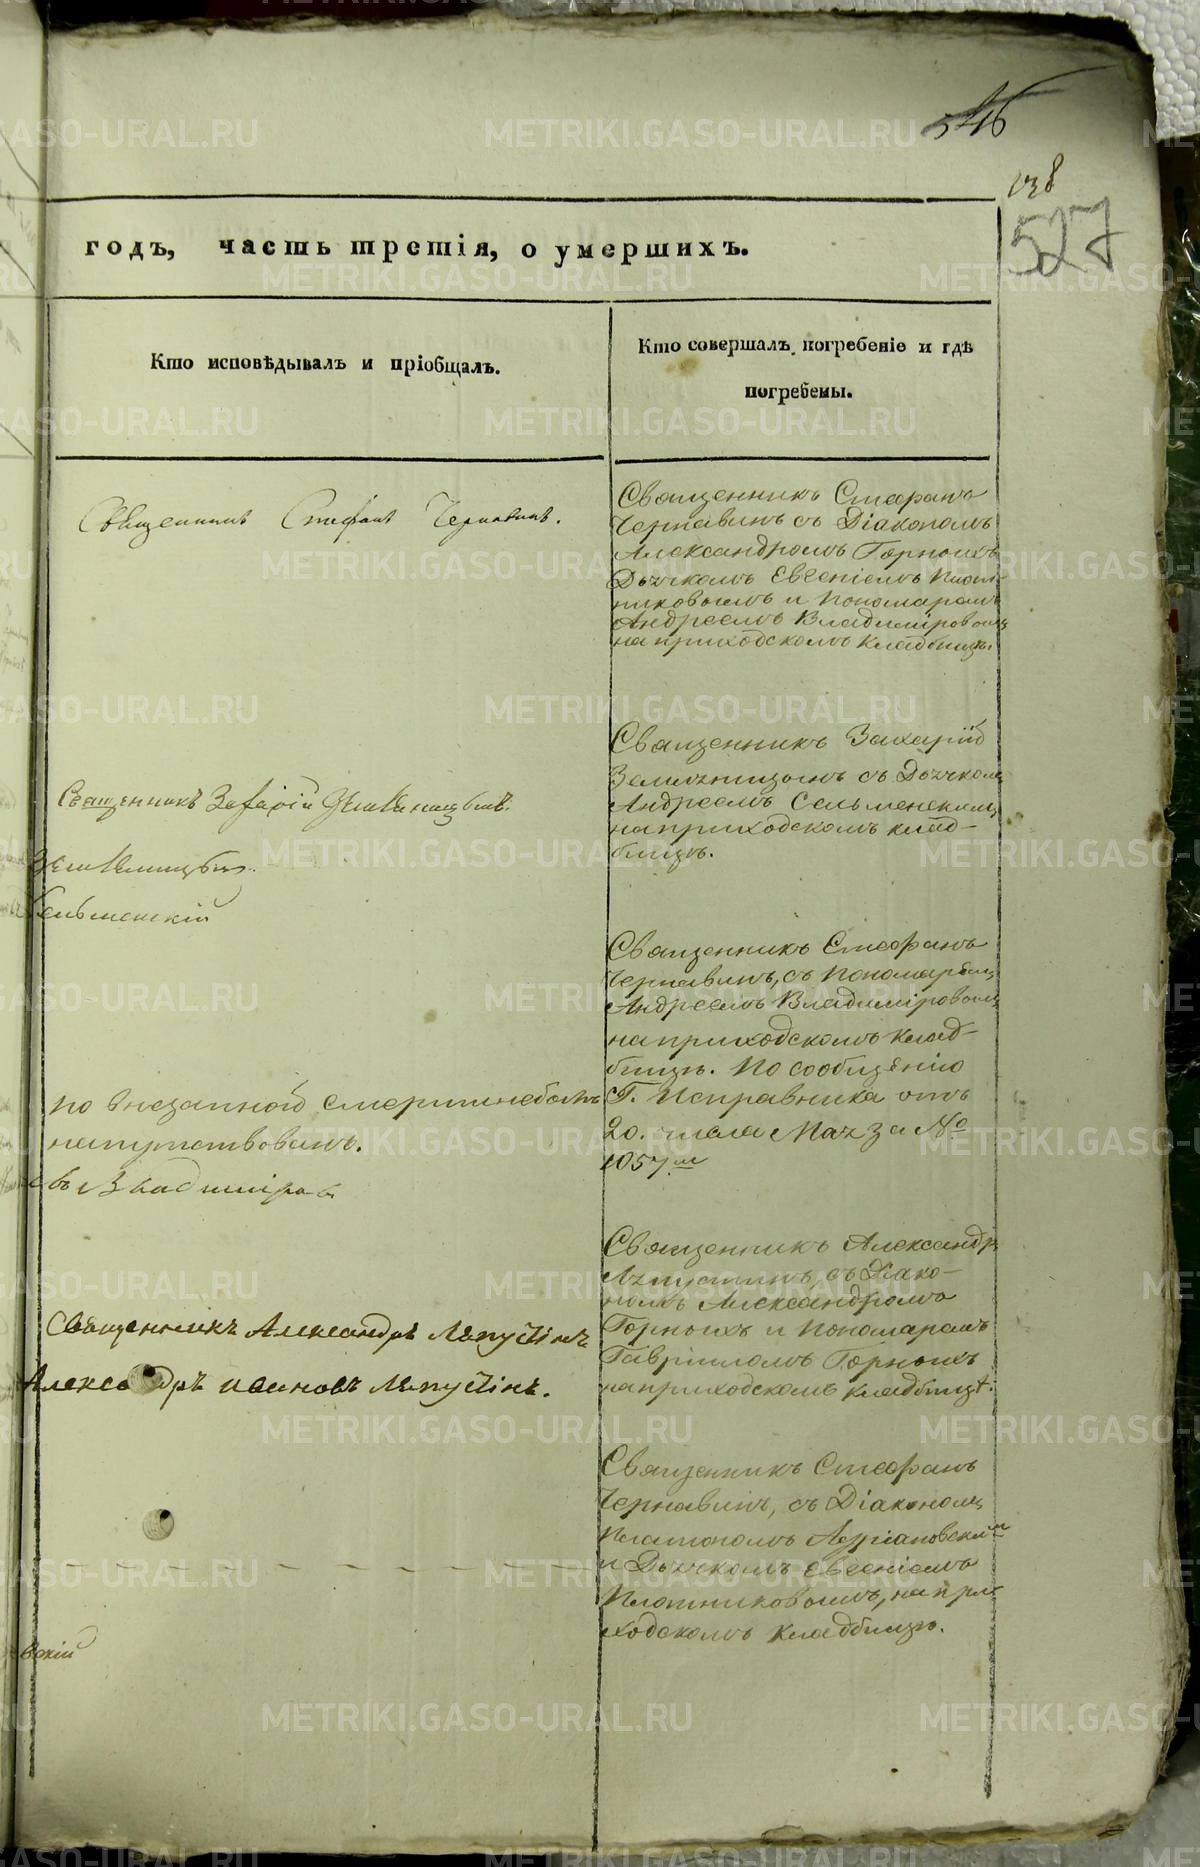 546
138
527
годъ, часть третія, о умершихъ.
Кто исповѣдывалъ и пріобщалъ.
Кто совершалъ погребеніе и гдѣ
погребены.
Священникъ Стефанъ Чернавинъ.
Священникъ Стефанъ
Чернавинъ съ Діакономъ
Александромъ Горныхъ
Дьячкомъ Евгеніемъ Плот-
никовымъ и Пономаремъ
Андреемъ Владиміровымъ
на приходскомъ кладбищѣ.
Священникъ Захарій Земляницынъ.
Земляницынъ
Сельменскій
Священникъ Захарій
Земляницынъ съ Дьячкомъ
Андреемъ Сельменскимъ
на приходскомъ клад-
бищѣ.
по внезапной смерти небылъ
напутствованъ.
Владиміровъ
Священникъ Стефанъ
Чернавинъ, съ Пономаремъ
Андреемъ Владиміровымъ
на приходскомъ клад-
бищѣ. По сообщенію
Г. Исправника отъ
20. числа Мая за №
1057м
Священникъ Александръ Ляпустинъ
Александръ Ивановъ Ляпустинъ.
Священникъ Александръ
Ляпустинъ, съ Діако-
номъ Александромъ
Горныхъ и Пономаремъ
Гавріиломъ Горныхъ
на приходскомъ кладбищѣ.
вскій
Священникъ Стефанъ
Чернавинъ, съ Діакономъ
Платономъ
и Дьячкомъ Евгеніемъ
Плотниковымъ, на при-
ходскомъ кладбищѣ.
METRIKI.GASO-URAL.RU